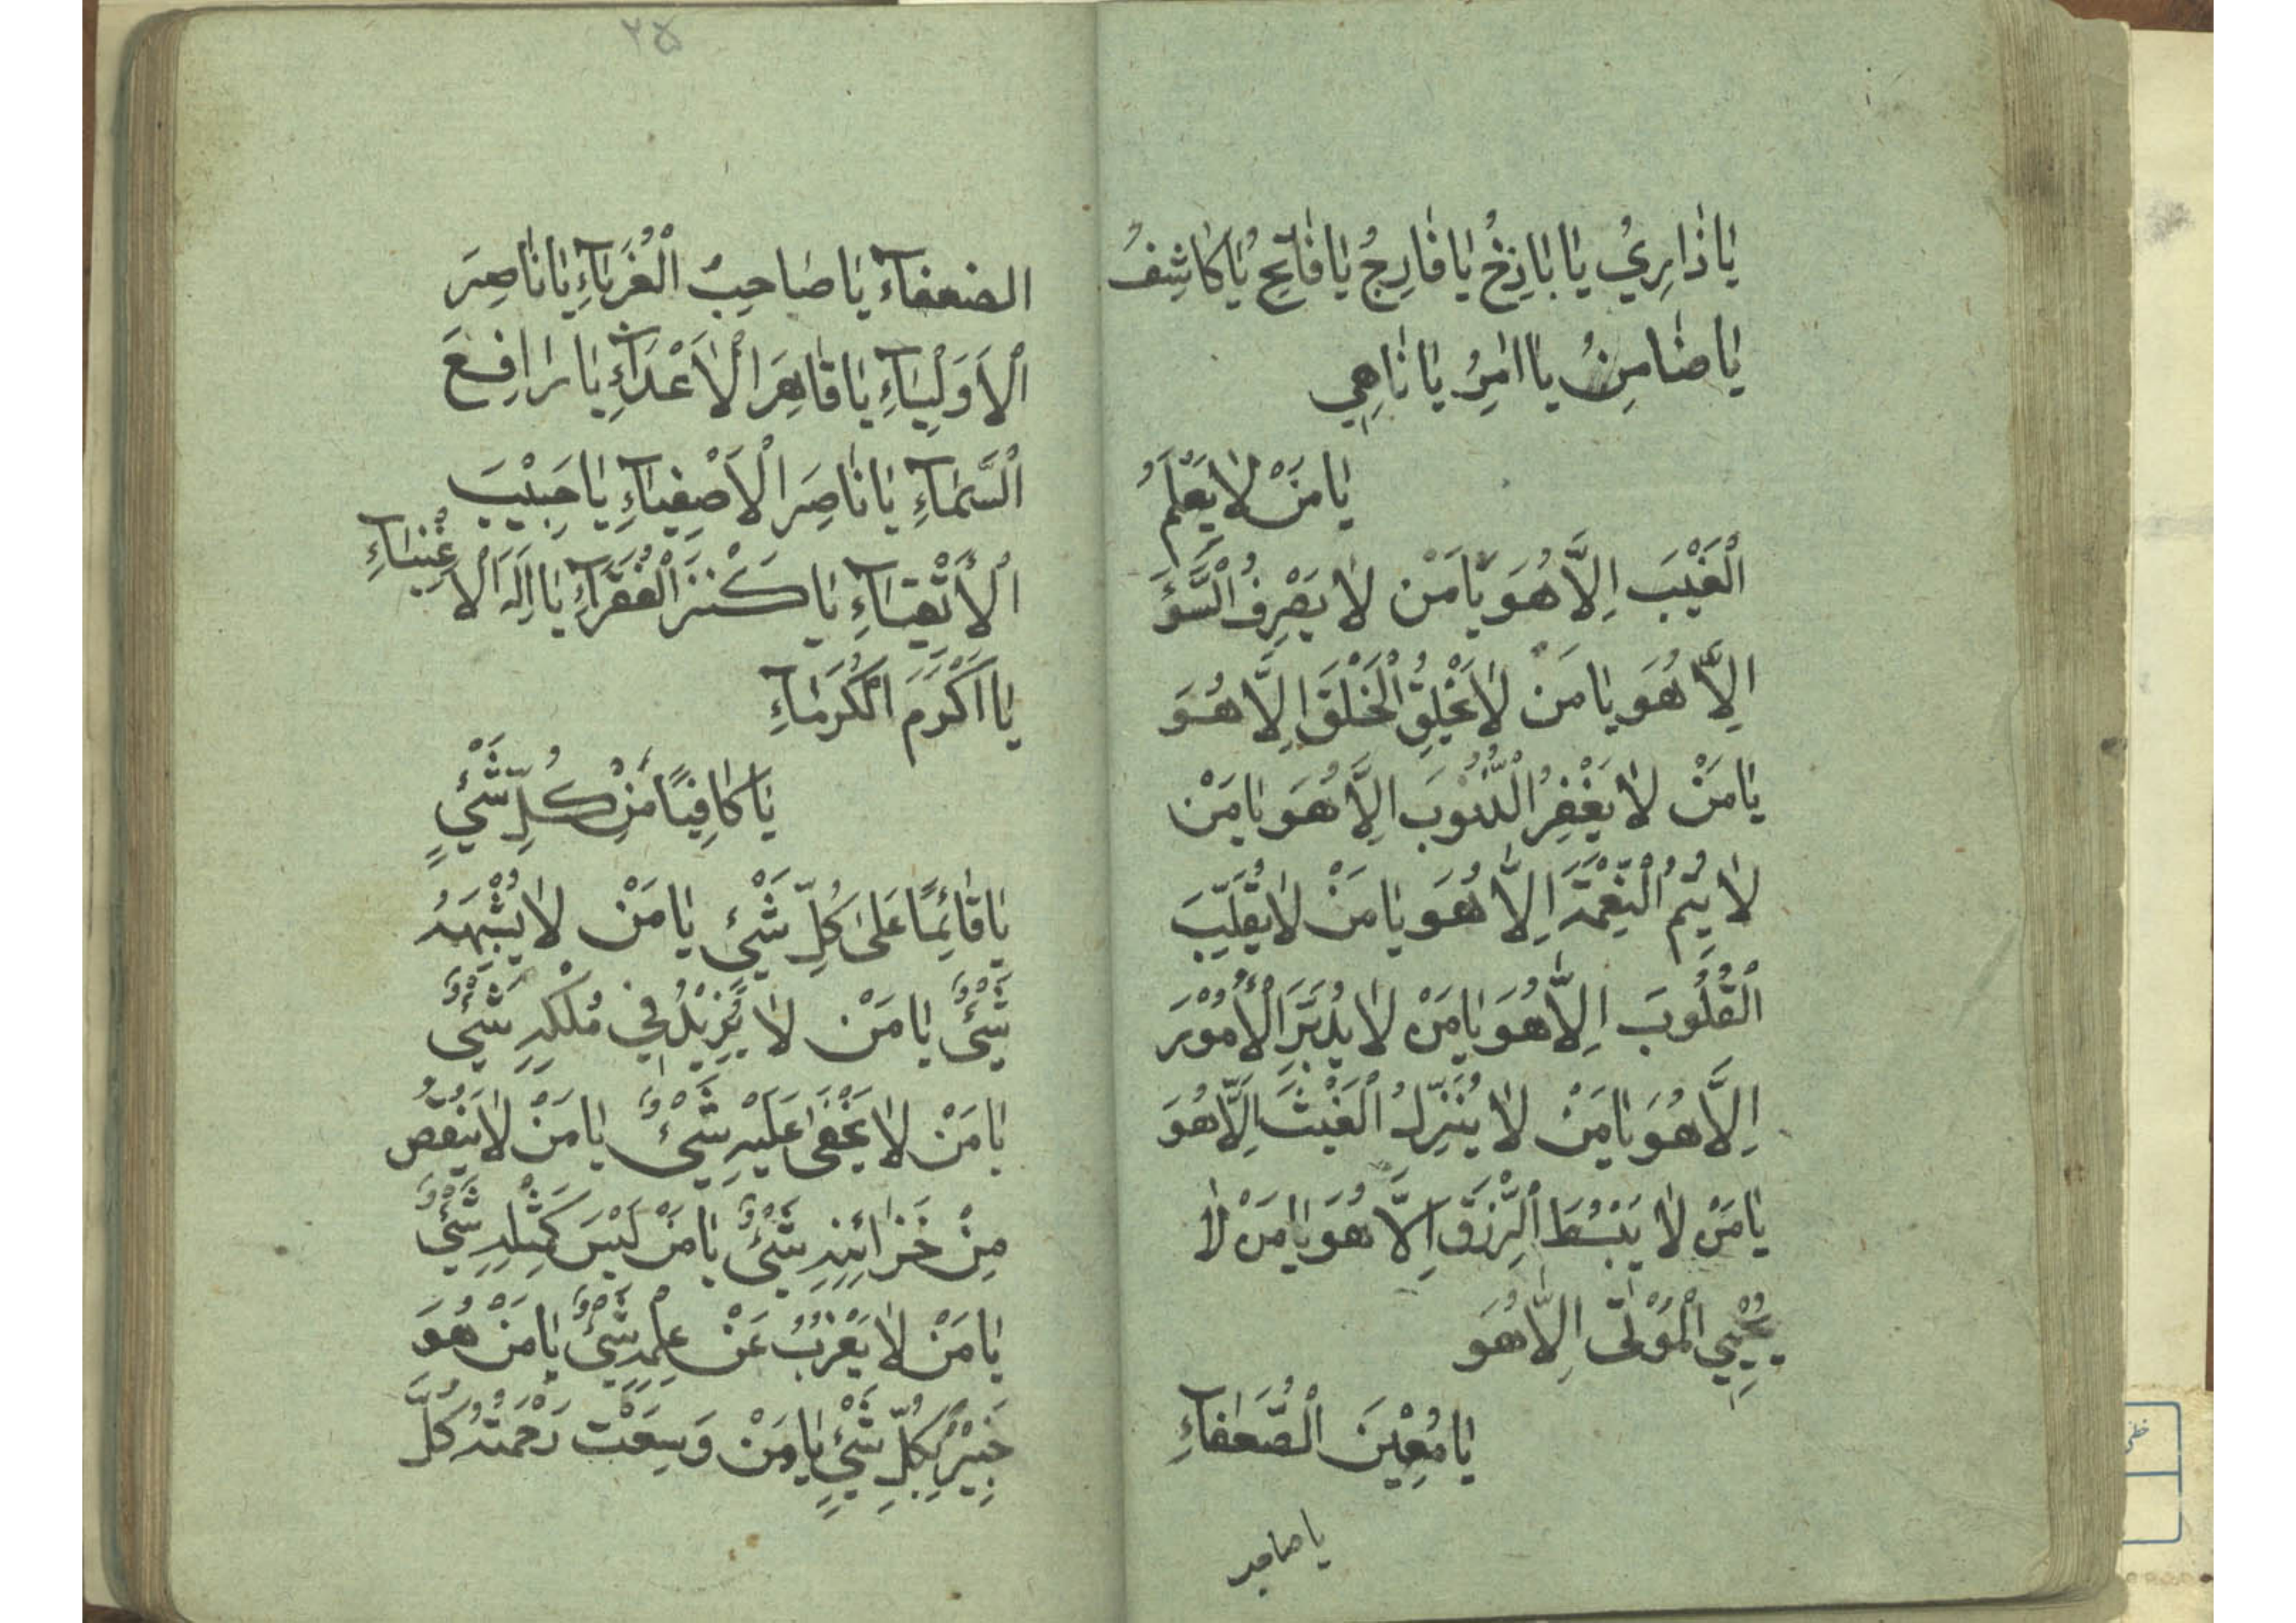 يَا ذَارِيُ يَا بَاذِخُ يَا فَارِجُ يَا فَاتِحُ يَا كَاشِفُ
يَا ضَامِنُ يَا اٰمِرُ يَا نَاهِي
يَا مَنْ لَا يَعْلَمُ
الْغَيْبَ اِلَّا هُوَ يَا مَنْ لَا يَصْرِفُ السُّوۤءَ
اِلَّا هُوَ يَا مَنْ لَا يَخْلُقُ الْخَلْقَ اِلَّا هُوَ
يَا مَنْ لَا يَغْفِرُ الذُّنُوبَ اِلَّا هُوَ يَا مَنْ
لَا يُتِمُّ النِّعْمَةَ اِلَّا هُوَ يَا مَنْ لَا يُقَلِّبُ
الْقُلُوبَ اِلَّا هُوَ يَا مَنْ لَا يُدَبِّرُ الْاُمُوْرَ
اِلَّا هُوَ يَا مَنْ لَا يُنَزِّلُ الْغَيْثَ اِلَّا هُوَ
يَا مَنْ لَا يَبْسُطُ الرِّزْقَ اِلَّا هُوَ يَا مَنْ لَا
يُحْيِي الْمَوْتٰى اِلَّا هُوَ
يَا مُعِيْنَ الضُّعَفَآءِ
يا صاحب
الضعفآء يَا صَاحِبُ الْغُرَبَآءِ يَا نَاصِرَ
الْاَوَلِيَآءِ يَا قَاهِرَ الْاَعْدَآءِ يَا رَافِعَ
السَّمَآءِ يَا نَاصِرَ الْاَصْفِيَآءِ يَا حَبِيْبَ
الْاَتْقِيَآءِ يَا كَنْزَ الْفُقَرَآءِ يَا اِلٰهَ الْاَغْنِيَآءِ
يَا اَكْرَمَ الْكُرَمَآءِ
يَا كَافِيًا مِنْ كُلِّ شَيْءٍ
يَا قَائِمًا عَلٰى كُلِّ شَيْءٍ يَا مَنْ لَا يُشْبِهُهُ
شَيْءٌ يَا مَنْ لَا يَزِيْدُ فِي مُلْكِهِ شَيْءٌ
يَا مَنْ لَا يَخْفٰى عَلَيْهِ شَيْءٌ يَا مَنْ لَا يَنْقُصُ
مِنْ خَزَائِنِهِ شَيْءٌ يَا مَنْ لَيْسَ كَمِثْلِهِ شَيْءٌ
يَا مَنْ لَا يَعْزُبُ عَنْ عِلْمِهِ شَيْءٌ يَا مَنْ هُوَ
خَبِيْرٌ بِكُلِّ شَيْءٍ يَا مَنْ وَسِعَتْ رَحْمَتُهُ كُلَّ